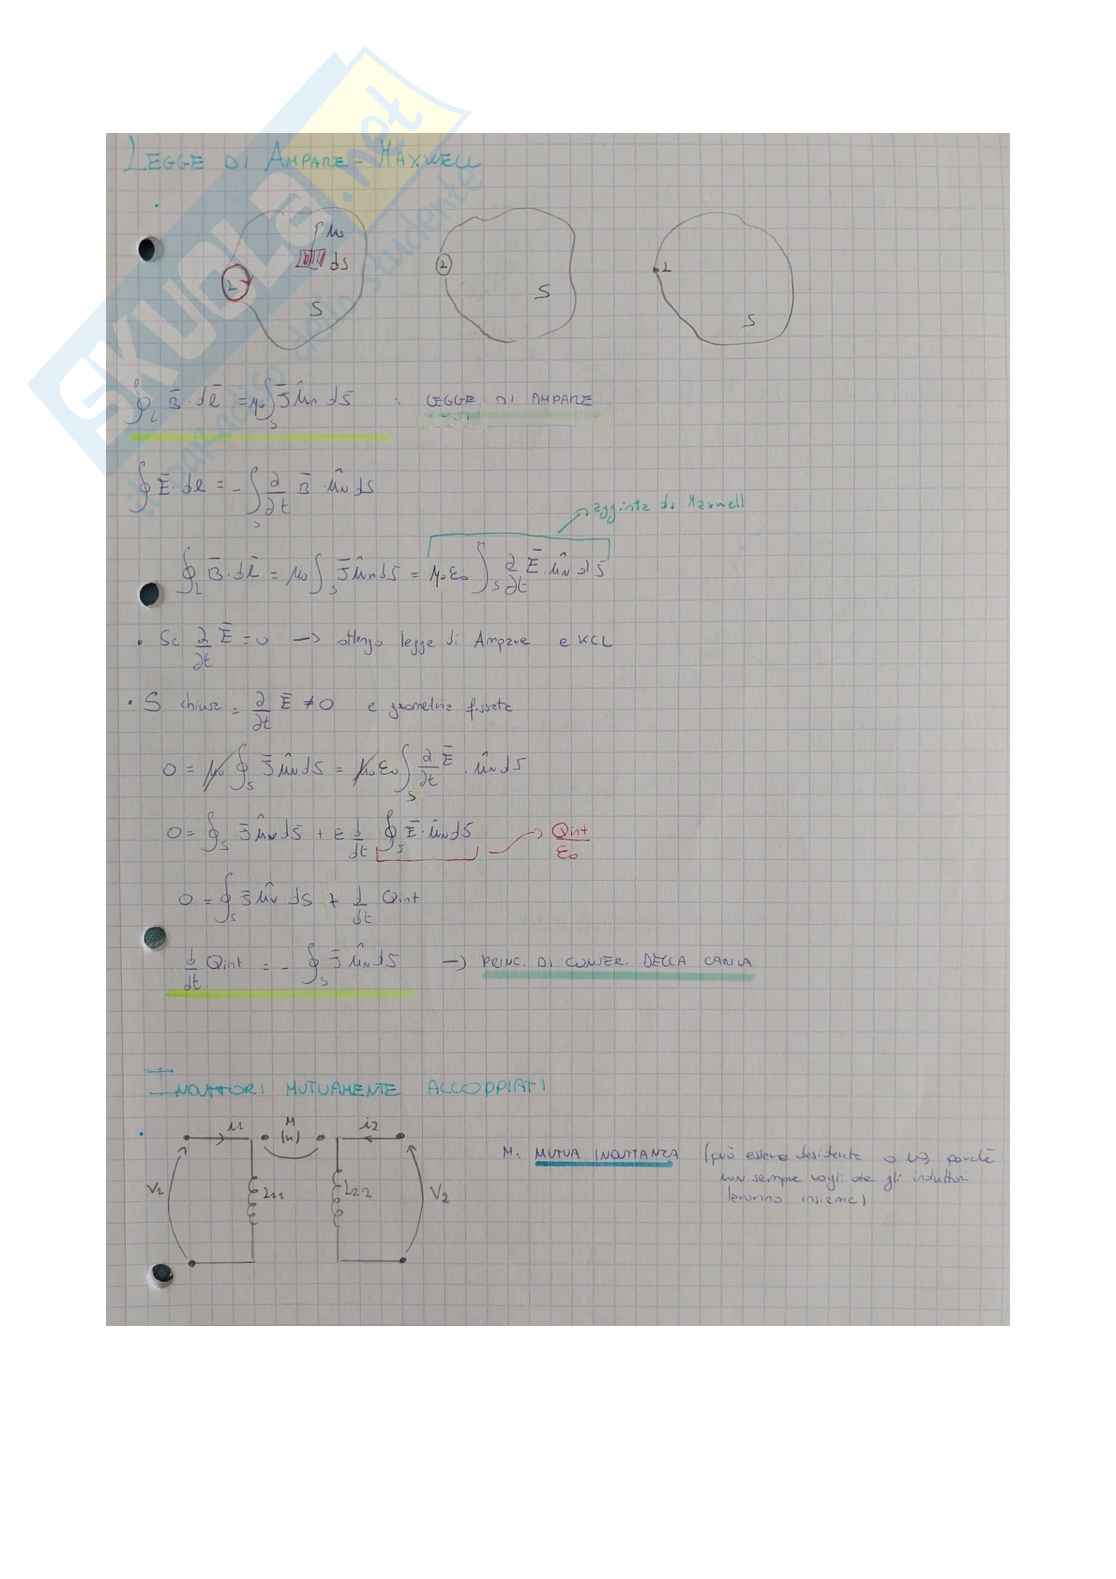 SKUOLA.net
LEGGE DI AMPARE - MAXWELL
L
ûn
dS
S
L
S
L
S
∮L B̄ · dl̄ = μ₀∫S J̄ ûn dS : LEGGE DI AMPARE
∮ Ē · dl = - ∫S ∂/∂t B̄ · ûn dS
aggiunta da Maxwell
∮L B̄ · dl̄ = μ₀ ∫S J̄ ûn dS = μ₀ε₀ ∫S ∂/∂t Ē · ûn dS
• Se ∂/∂t Ē = 0 → ottengo legge di Ampare e KCL
• S chiusa = ∂/∂t Ē ≠ 0 e geometria fissata
0 = μ₀ ∮S J̄ ûn dS = μ₀ ε₀ ∫S ∂/∂t Ē · ûn dS
0 = ∮S J̄ ûn dS + ε d/dt ∮S Ē · ûn dS → Qint/ε₀
0 = ∮S J̄ ûn dS + d/dt Qint
d/dt Qint = - ∮S J̄ ûn dS → PRINC. DI CONSER. DELLA CARICA
INDUTTORI MUTUAMENTE ACCOPPIATI
i1 M i2
V1 L11 L22 V2
M: MUTUA INDUTTANZA (può essere desiderata o no, perchè
non sempre voglio che gli induttori
lavorino insieme)